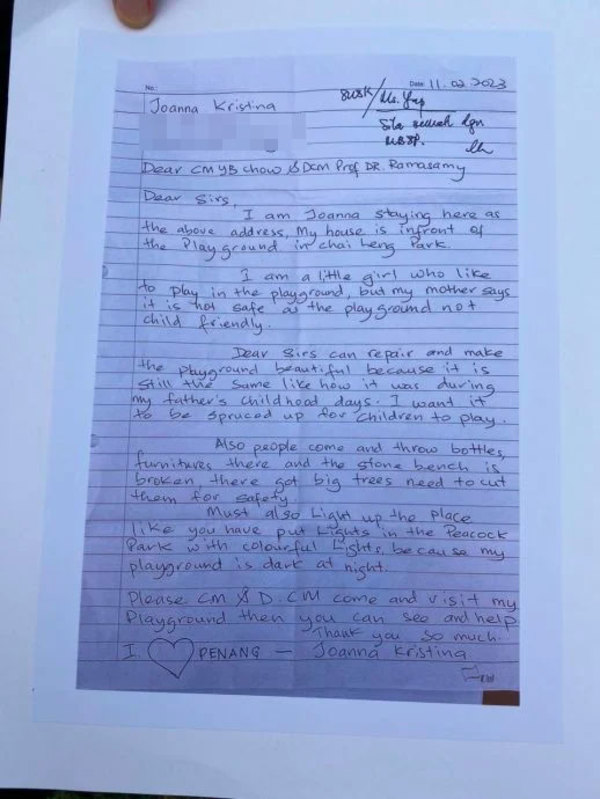 No:
Date: 11.02.2023
Joanna Kristina
SUSK/Ms. Yap
Sila semak dgn
MBSP.
Dear CM YB Chow & DCM Prof DR. Ramasamy
Dear Sirs,
I am Joanna staying here as
the above address, My house is infront of
the Playground in chai Leng Park.
I am a little girl who like
to play in the playground, but my mother says
it is not safe as the playground not
child friendly.
Dear Sirs can repair and make
the playground beautiful because it is
still the same like how it was during
my father's childhood days. I want it
to be spruced up for children to play.
Also people come and throw bottles,
furnitures there and the stone bench is
broken, there got big trees need to cut
them for safety.
Must also Light up the place
like you have put Lights in the Peacock
Park with colourful Lights, because my
playground is dark at night.
Please CM & D.CM come and visit my
Playground then you can see and help
Thank you so much.
I PENANG — Joanna Kristina